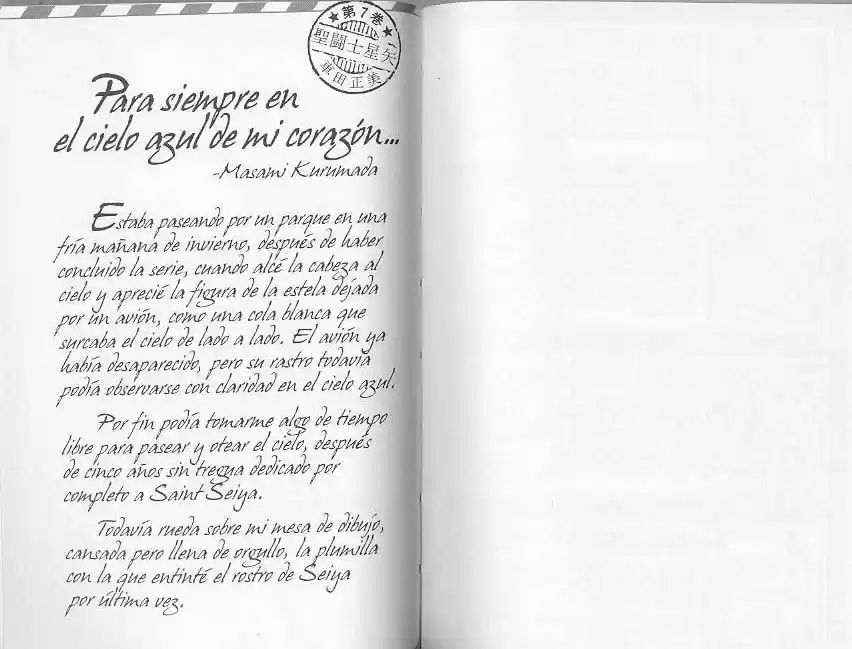 ★第7巻★
聖闘士星矢
車田正美
Para siempre en
el cielo azul de mi corazón...
-Masami Kurumada
Estaba paseando por un parque en una
fría mañana de invierno, después de haber
concluido la serie, cuando alcé la cabeza al
cielo y aprecié la figura de la estela dejada
por un avión, como una cola blanca que
surcaba el cielo de lado a lado. El avión ya
había desaparecido, pero su rastro todavía
podía observarse con claridad en el cielo azul.
Por fin podía tomarme algo de tiempo
libre para pasear y otear el cielo, después
de cinco años sin tregua dedicado por
completo a Saint Seiya.
Todavía rueda sobre mi mesa de dibujo,
cansada pero llena de orgullo, la plumilla
con la que entinté el rostro de Seiya
por última vez.